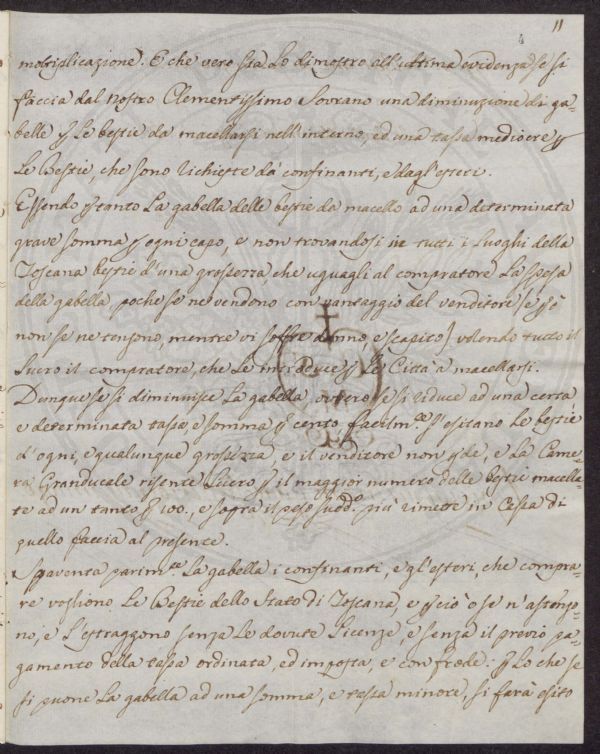 11
moltiplicazione. E che vero sia lo dimostro all'ultima evidenza, se si
faccia dal Nostro Clementissimo Sovrano una diminuzione di ga-
belle p le bestie da macellarsi nell'interno, ed una tassa mediocre p
le Bestie, che sono richieste da' confinanti, e dagl'esteri.
Essendo p tanto la gabella delle bestie da macello ad una determinata
grave somma p ogni capo, e non trovandosi in tutti i luoghi della
Toscana bestie d'una grossezza, che uguagli al compratore la spesa
della gabella, poche se ne vendono con vantaggio del venditore, e p ò
non se ne tengono, mentre vi soffre danno, e scapito, volendo tutto il
lucro il compratore, che le introduce p le Città a macellarsi.
Dunque se si diminuisce la gabella ovvero se si riduce ad una certa
e determinata tassa, e somma p cento facilm.te s'esitano le bestie
d'ogni, e qualunque grossezza, e il venditore non pde, e la Came-
ra Granducale risente lucro p il maggior numero delle bestie macella-
te ad un tanto p 100., e sopra il peso sudd.o più rimette in Cassa di
quello faccia al presente.
Spaventa parim.te la gabella i confinanti, e gl'esteri, che compra-
re vogliono le Bestie dello Stato di Toscana, e p ciò o se n'astengo-
no, e l'estraggono senza le dovute licenze, e senza il previo pa-
gamento della tassa ordinata, ed imposta, e con frode: p lo che se
si puone la gabella ad una somma, e tassa minore, si farà esito